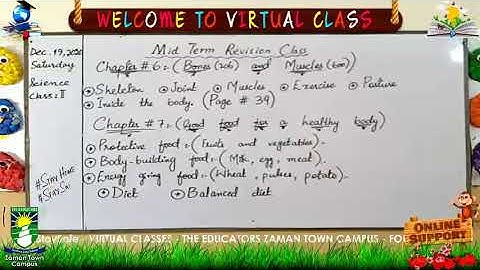 WELCOME TO VIRTUAL CLASS
Dec. 19, 2020
Saturday
Science
Class: II
Mid Term Revision Class
Chapter # 6: (Bones (206) and Muscles (600))
Skeleton Joint Muscles Exercise Posture
Inside the body. (Page # 39)
Chapter # 7: (Good food for a healthy body)
Protective food: (Fruits and vegetables).
Body-building food: (Milk, egg, meat).
Energy giving food: (Wheat, pulses, potato).
Diet Balanced diet
#Stay Home
ONLINE
SUPPORT
VIRTUAL CLASSES - THE EDUCATORS ZAMAN TOWN CAMPUS -
Zaman Town
Campus